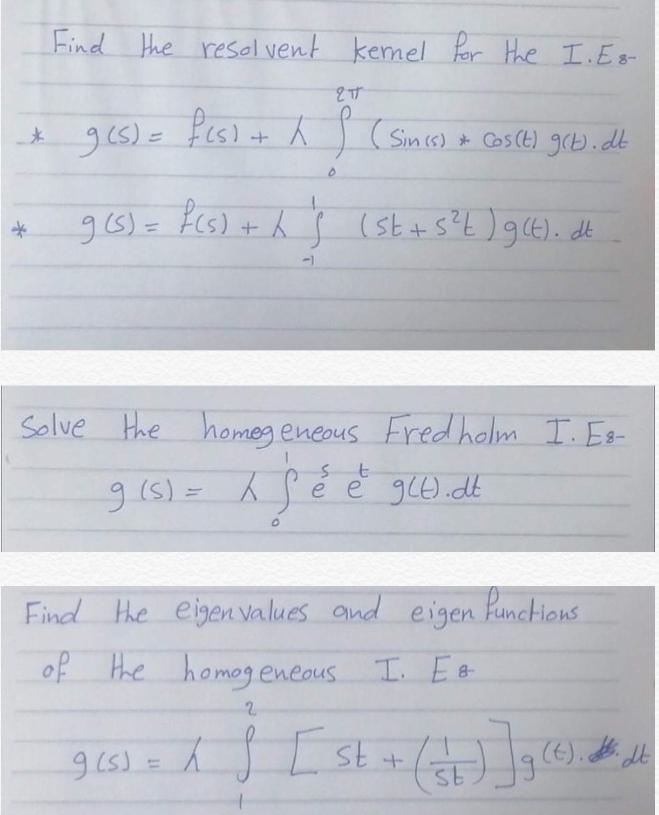 Find the resolvent kernel for the I.E:-
* g(s) = f(s) + λ ∫₀^2π (Sin(s) * Cos(t) g(t).dt
* g(s) = f(s) + λ ∫₋₁^1 (st + s²t) g(t). dt
Solve the homogeneous Fredholm I.E:-
g(s) = λ ∫₀^1 e^s e^t g(t).dt
Find the eigenvalues and eigen functions
of the homogeneous I.E:-
g(s) = λ ∫₁^2 [ st + (1/st) ] g(t). dt